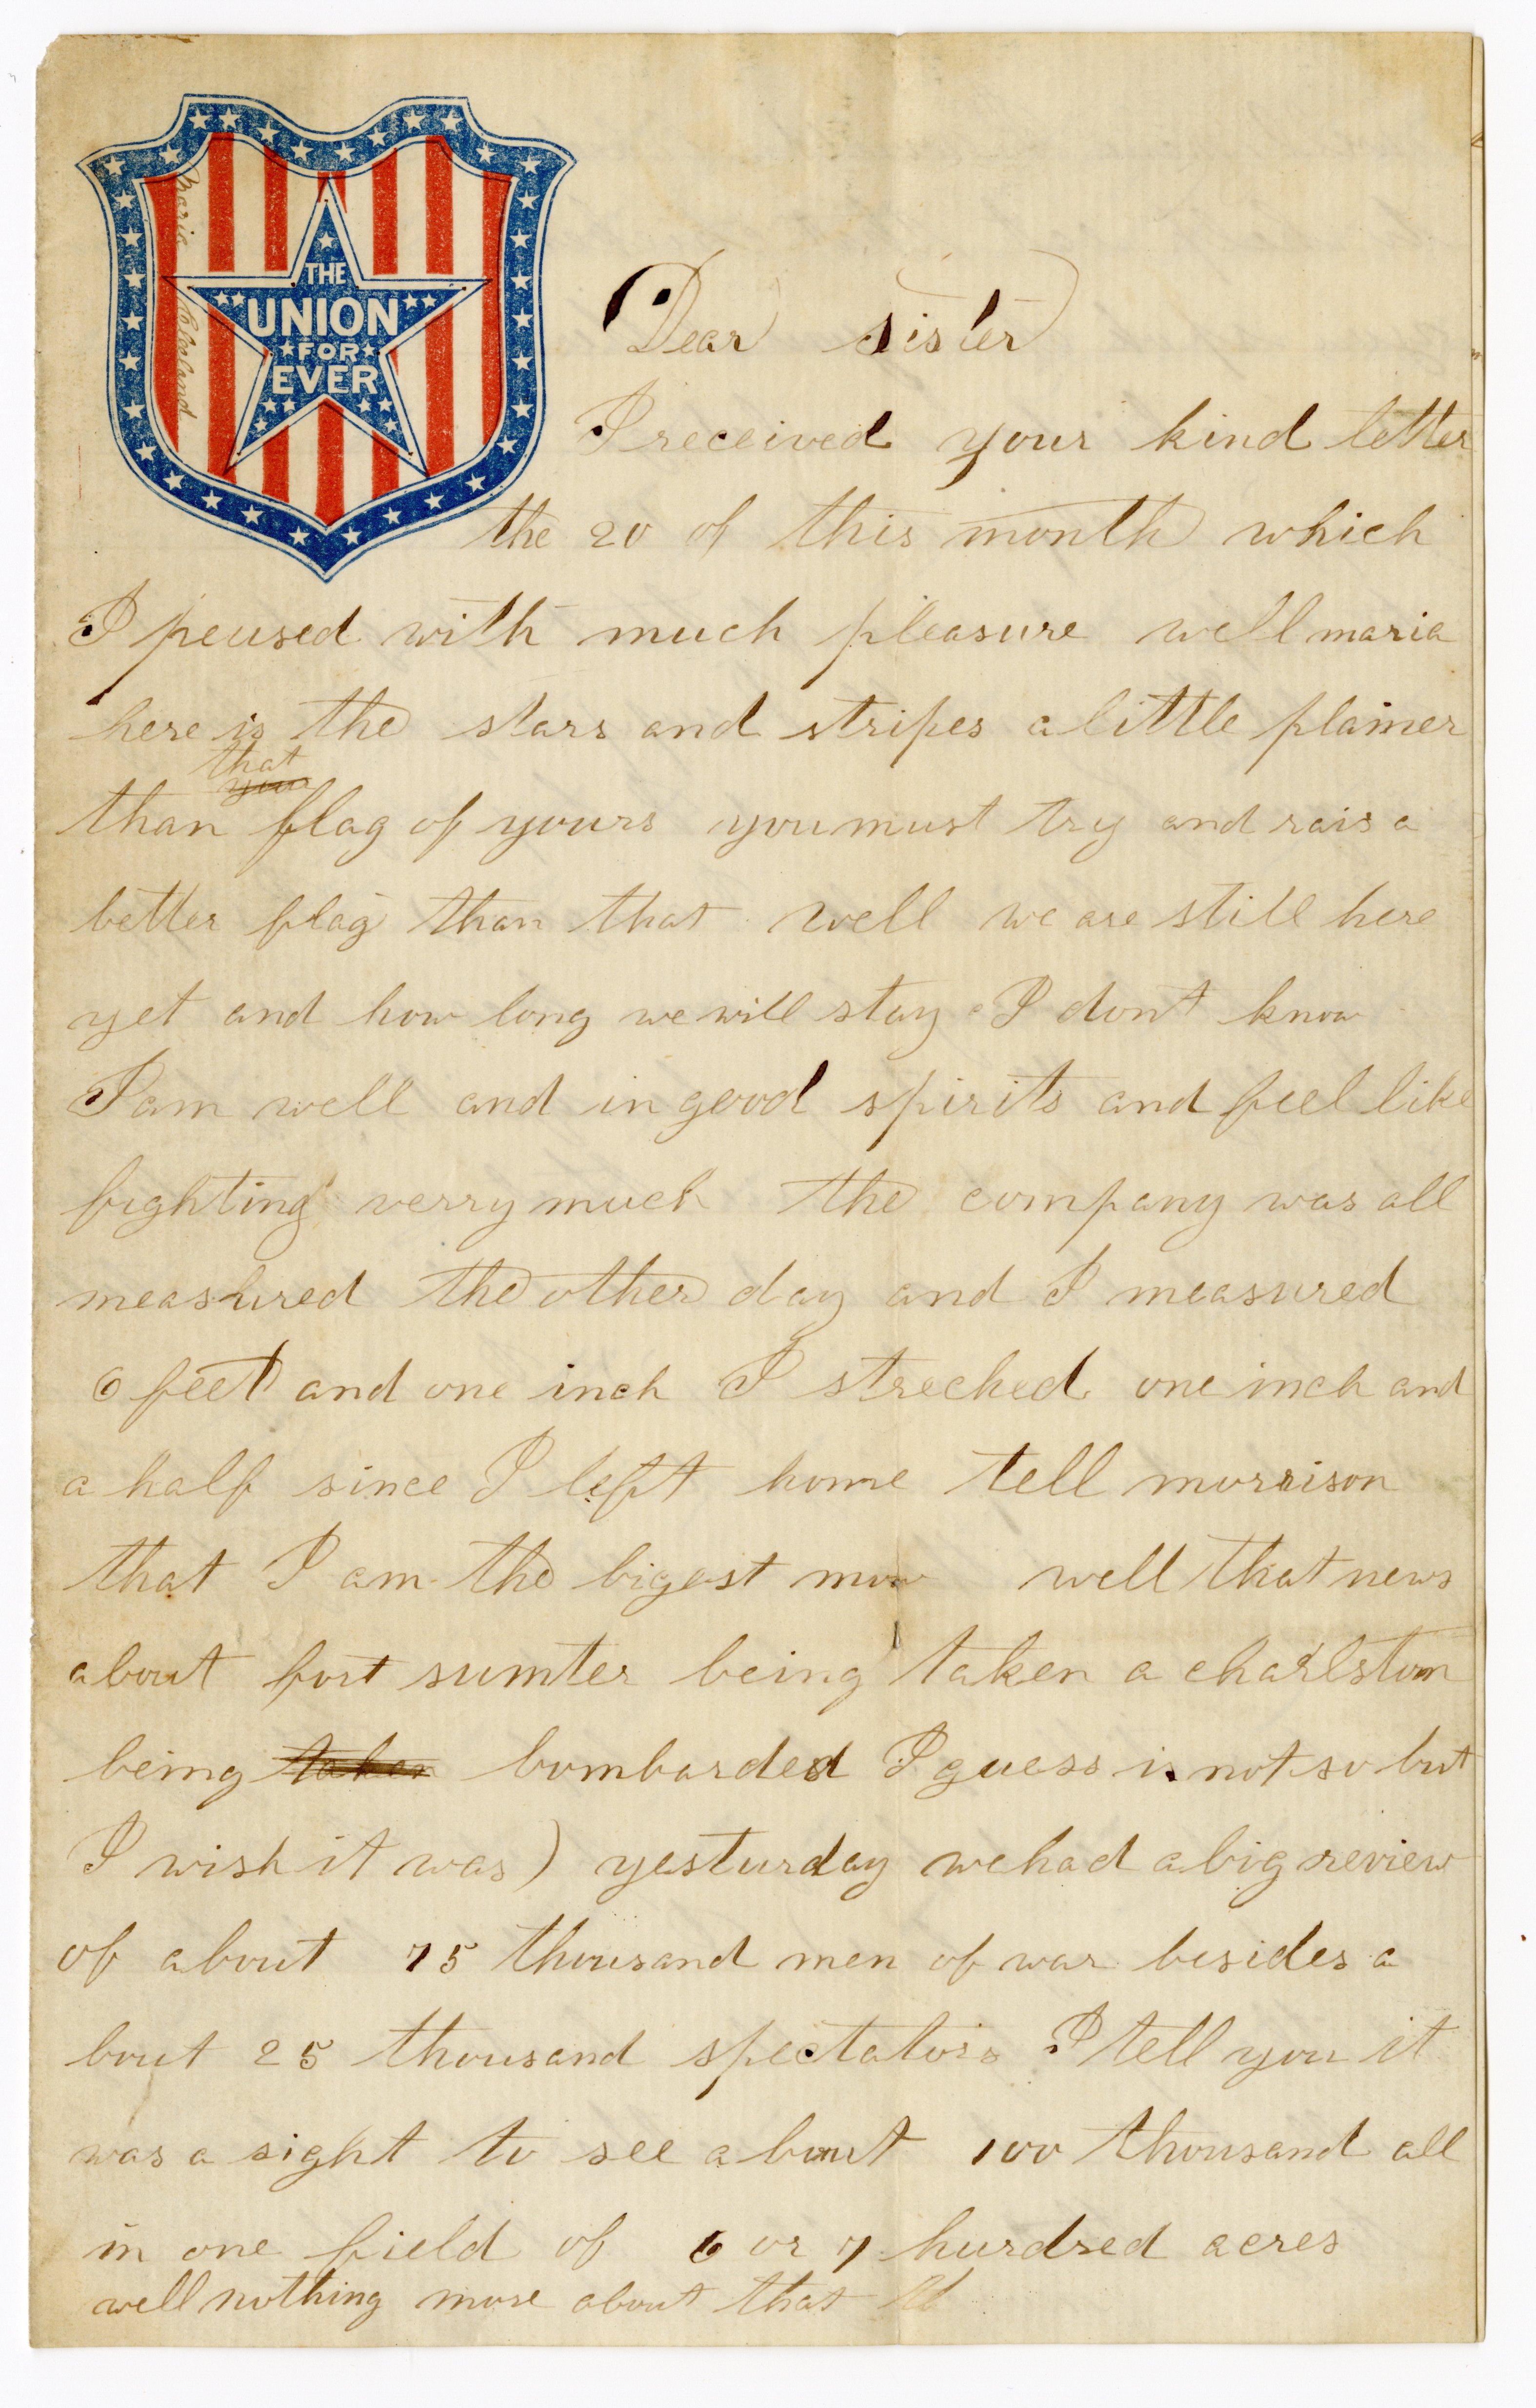 THE
UNION
FOR
EVER
Maria Cleland
Dear sister
I received your kind letter
the 20 of this month which
I peused with much pleasure well maria
here is the stars and stripes a little plainer
that
you
than flag of yours you must try and rais a
better flag than that well we are still here
yet and how long we will stay I dont know
I am well and in good spirits and feel like
fighting verry much the company was all
meashured the other day and I measured
6 feet and one inch I streched one inch and
a half since I left home tell morrison
that I am the bigest now well that news
about fort sumter being taken a charlston
being taken bombarded I guess is not so but
I wish it was) yesturday we had a big review
of about 75 thousand men of war besides a
bout 25 thousand spectators I tell you it
was a sight to see about 100 thousand all
in one field of 6 or 7 hurdred acres
well nothing more about that